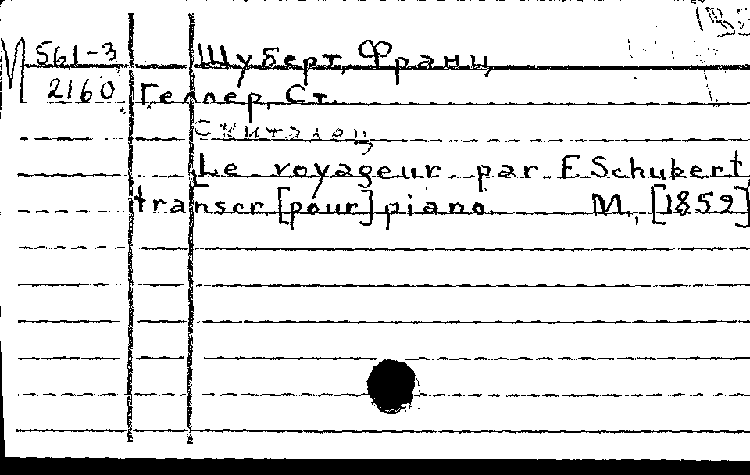 М 561-3 Шуберт, Франц
2160 Геллер, Ст.
Скиталец
Le voyageur par F Schubert,
transcr [pour] piano М., [1859]